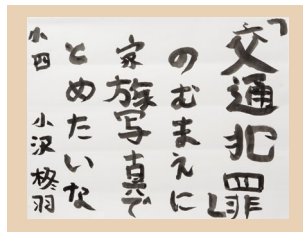 「交通犯罪」
のむまえに
家族写真で
とめたいな
小四 小沢柊羽